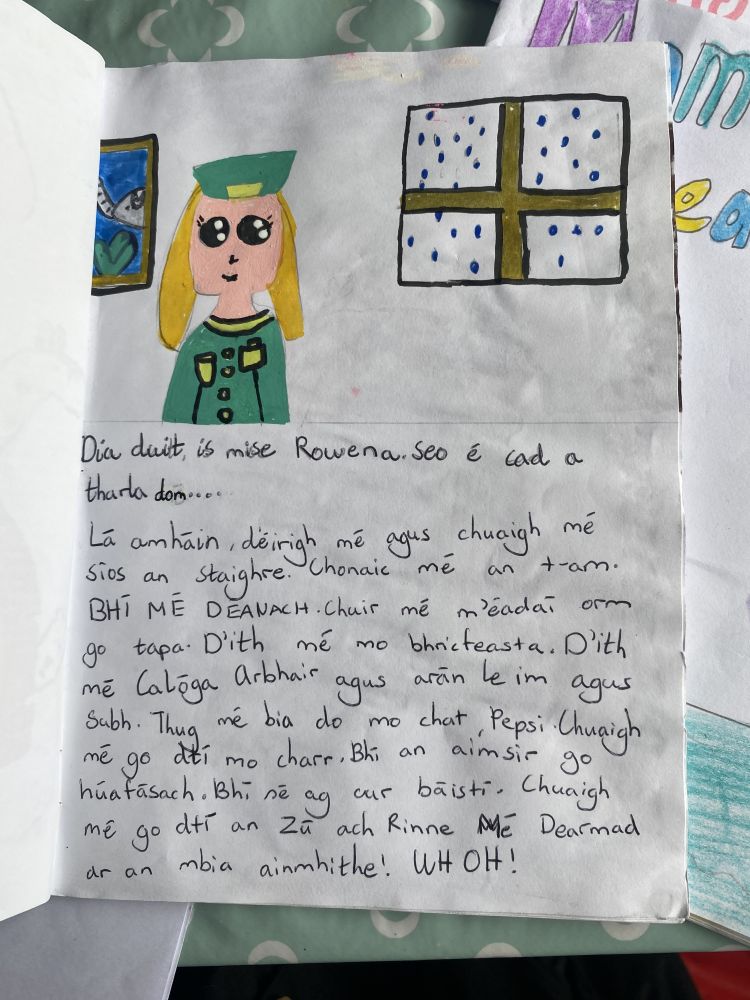 Dia duit, is mise Rowena. Seo é cad a
tharla dom....
Lá amháin, d'éirigh mé agus chuaigh mé
síos an staighre. Chonaic mé an t-am.
BHÍ MÉ DÉANACH. Chuir mé m'éadaí orm
go tapa. D'ith mé mo bhricfeasta. D'ith
mé Calóga Arbhair agus arán le im agus
Subh. Thug mé bia do mo chat, Pepsi. Chuaigh
mé go dtí mo charr. Bhí an aimsir go
húafásach. Bhí sé ag cur báistí. Chuaigh
mé go dtí an Zú ach Rinne Mé Dearmad
ar an mbia ainmhithe! WH OH!
M
om
ea